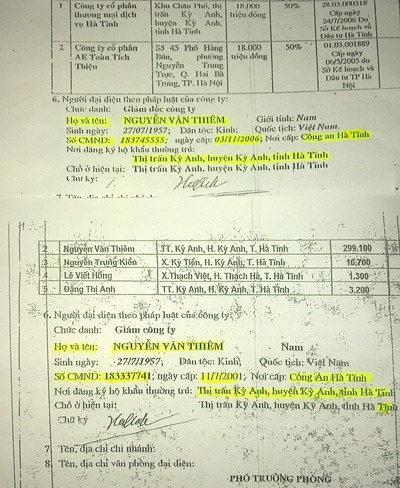 1 Công ty cổ phần thương mại dịch vụ Hà Tĩnh Khu Châu Phố, thị trấn Kỳ Anh, huyện Kỳ Anh, tỉnh Hà Tĩnh 18.000 triệu đồng 50% 28.03.000318 Cấp ngày 24/7/2006 Do Sở Kế hoạch và Đầu tư Hà Tĩnh
2 Công ty cổ phần AE Toàn Tích Thiện Số 45 Phố Hàng Bún, phường Nguyễn Trung Trực, Q. Hai Bà Trưng, TP. Hà Nội 18.000 triệu đồng 50% 01.03.001889 Cấp ngày 06/5/2005 do Sở Kế hoạch và Đầu tư TP Hà Nội
6. Người đại diện theo pháp luật của công ty:
Chức danh: Giám đốc công ty
Họ và tên: NGUYỄN VĂN THIÊM Giới tính: Nam
Sinh ngày: 27/07/1957; Dân tộc: Kinh; Quốc tịch: Việt Nam
Số CMND: 183745555; ngày cấp: 03/11/2006; Nơi cấp: Công an Hà Tĩnh
Nơi đăng ký hộ khẩu thường trú:
Thị trấn Kỳ Anh, huyện Kỳ Anh, tỉnh Hà Tĩnh
Chỗ ở hiện tại: Thị trấn Kỳ Anh, huyện Kỳ Anh, tỉnh Hà Tĩnh
Chữ ký:
2 Nguyễn Văn Thiêm TT. Kỳ Anh, H. Kỳ Anh, T. Hà Tĩnh 299.100
3 Nguyễn Trung Kiên X. Kỳ Tiến, H. Kỳ Anh, T. Hà Tĩnh 16.700
4 Lê Viết Hồng X.Thạch Việt, H. Thạch Hà, T. Hà Tĩnh 1.300
5 Đặng Thị Anh TT. Kỳ Anh, H. Kỳ Anh, T. Hà Tĩnh 3.200
6. Người đại diện theo pháp luật của công ty:
Chức danh: Giám công ty
Họ và tên: NGUYỄN VĂN THIÊM Nam
Sinh ngày: 27/7/1957; Dân tộc: Kinh; Quốc tịch: Việt Nam
Số CMND: 183337741; ngày cấp: 11/7/2001; Nơi cấp: Công An Hà Tĩnh
Nơi đăng ký hộ khẩu thường trú: Thị trấn Kỳ Anh, huyện Kỳ Anh, tỉnh Hà Tĩnh
Chỗ ở hiện tại: Thị trấn Kỳ Anh, huyện Kỳ Anh, tỉnh Hà Tĩnh
Chữ ký
7. Tên, địa chỉ chi nhánh:
8. Tên, địa chỉ văn phòng đại diện:
PHÓ TRƯỞNG PHÒNG